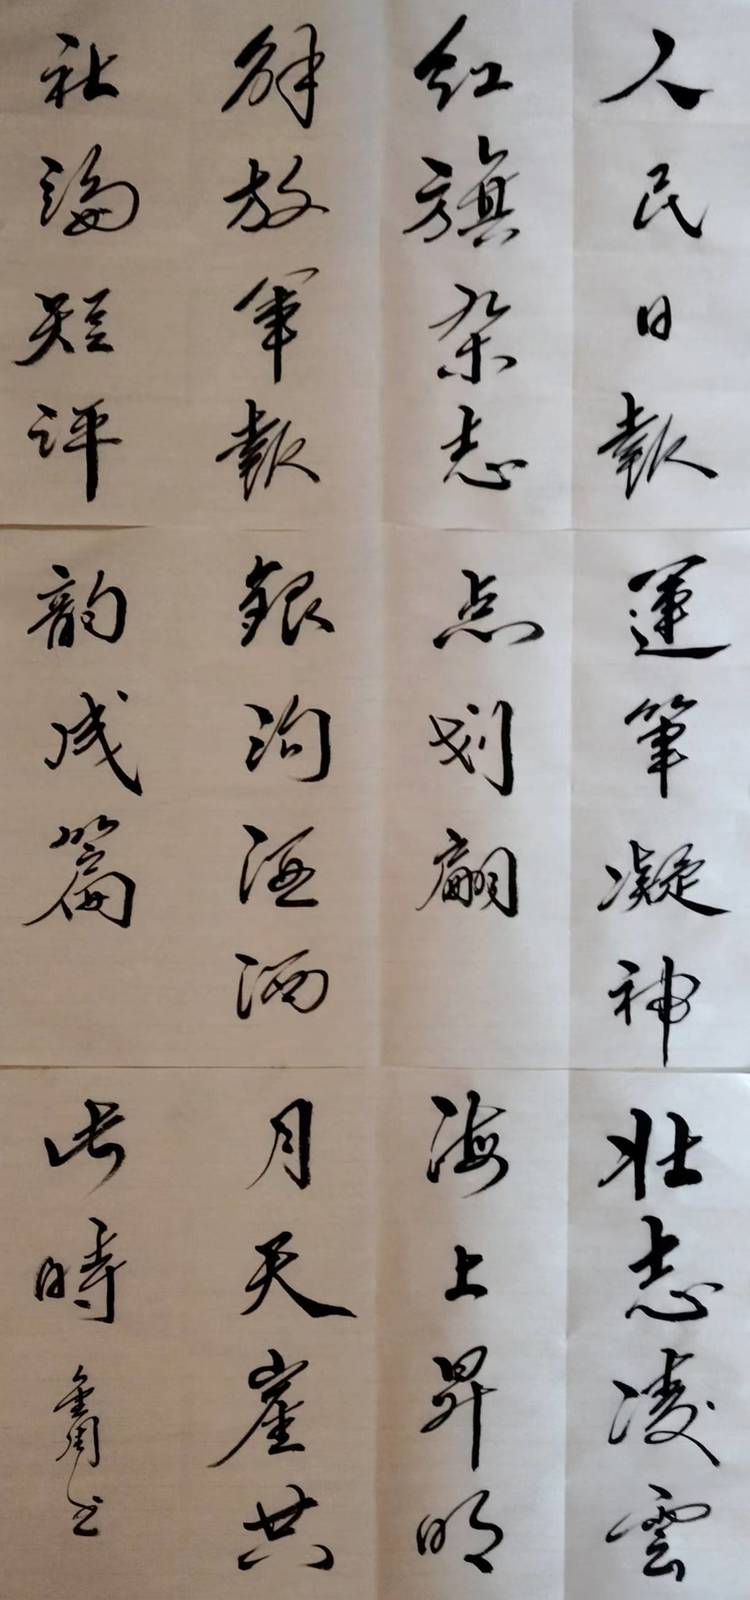 人民日報
紅旗杂志
解放軍報
社論短评
運筆凝神
点划翩
銀河洒
韵成篇
壮志凌雲
海上昇明
月天崖共
此時
书